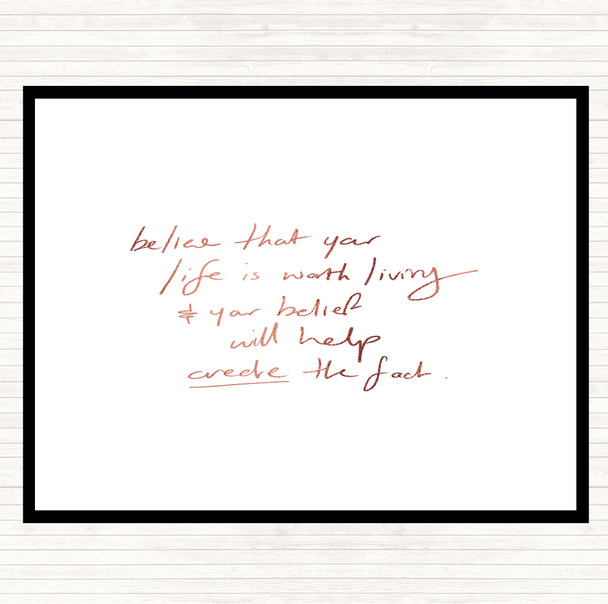 believe that your
life is worth living
& your belief
will help
create the fact.